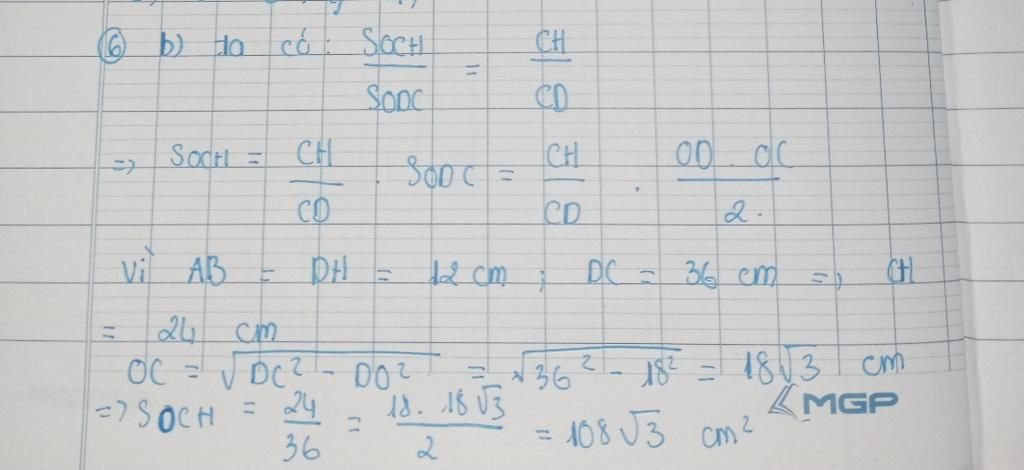 ⑥ b) ta có: SOCH / SODC = CH / CD
=> SOCH = CH / CD . SODC = CH / CD . OD . OC / 2.
Vì AB = DH = 12 cm ; DC = 36 cm => CH
= 24 cm
OC = √(DC² - DO²) = √(36² - 18²) = 18√3 cm
=> SOCH = 24 / 36 = 18 . 18√3 / 2 = 108√3 cm²
MGP